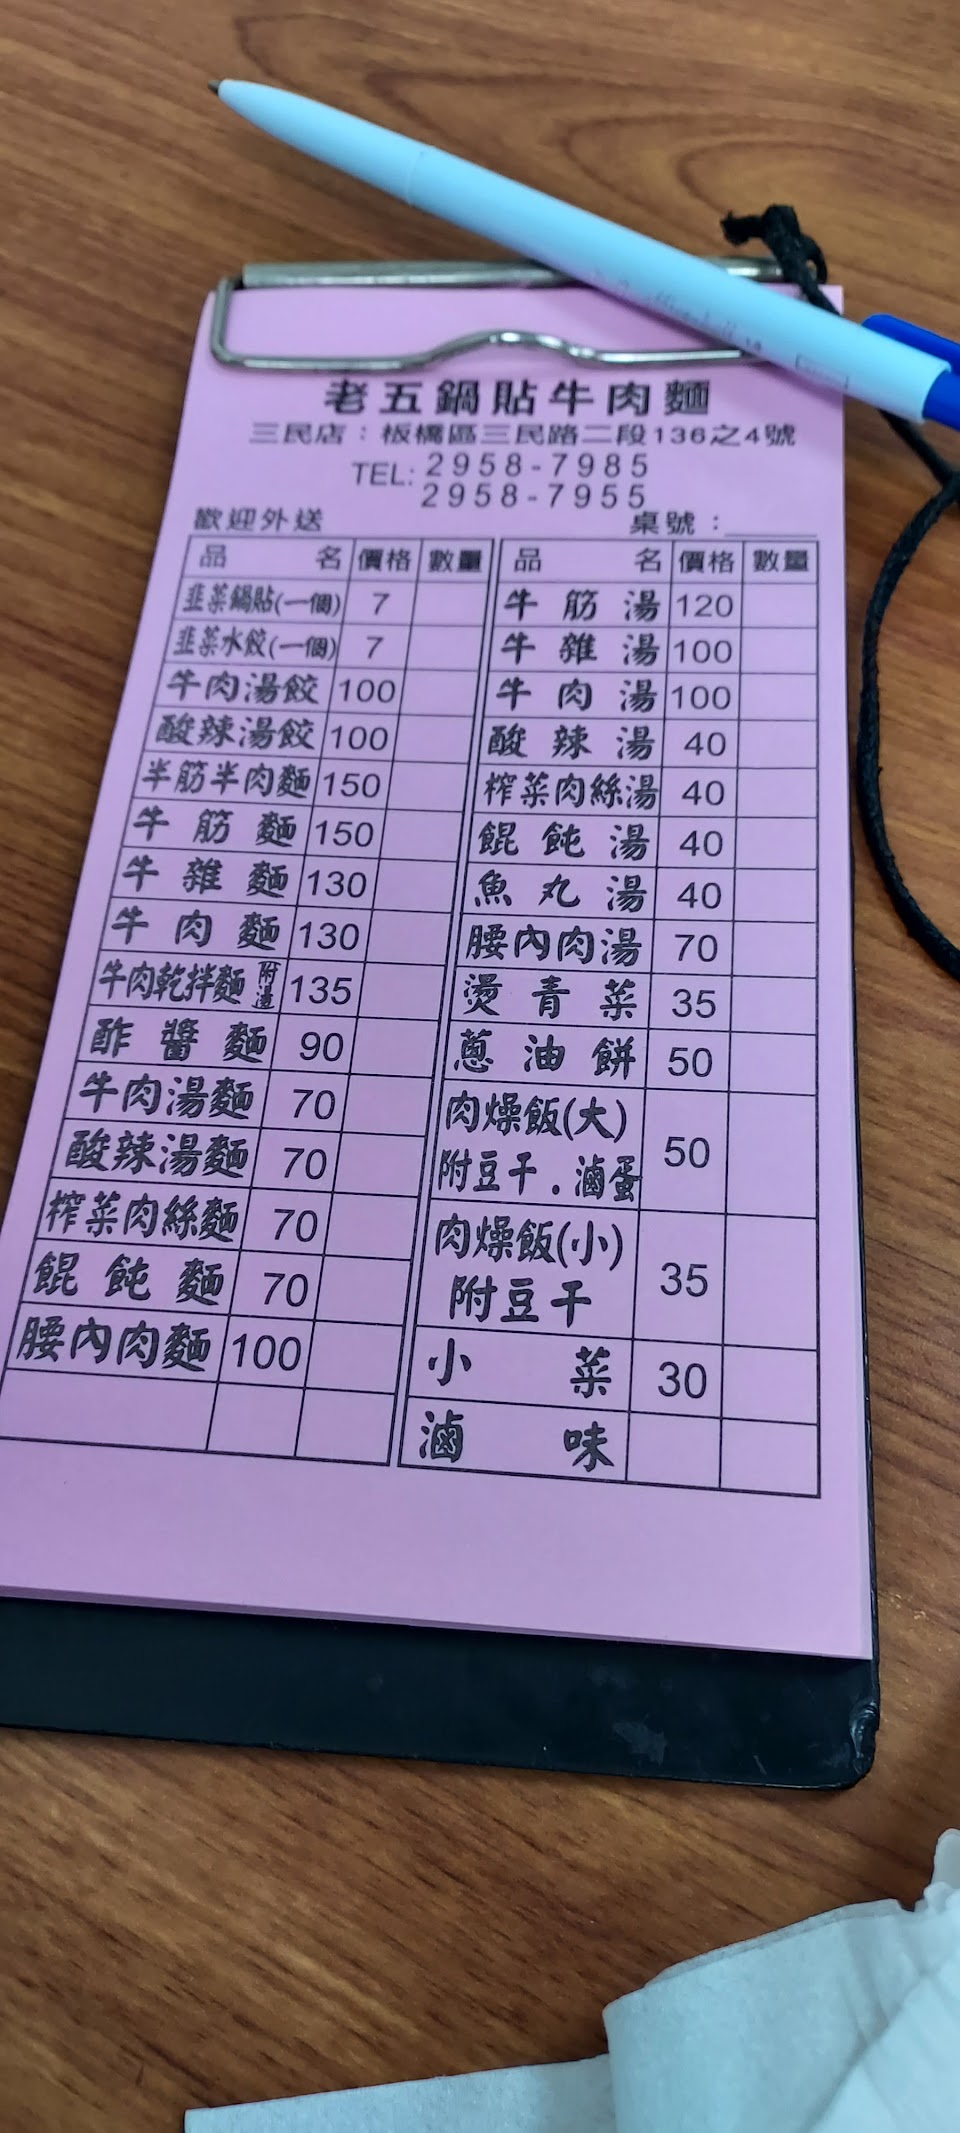 老五鍋貼牛肉麵
三民店：板橋區三民路二段136之4號
TEL: 2958-7985
2958-7955
歡迎外送 桌號：
品名 價格 數量
韭菜鍋貼(一個) 7
韭菜水餃(一個) 7
牛肉湯餃 100
酸辣湯餃 100
半筋半肉麵 150
牛筋麵 150
牛雜麵 130
牛肉麵 130
牛肉乾拌麵 附湯 135
酢醬麵 90
牛肉湯麵 70
酸辣湯麵 70
榨菜肉絲麵 70
餛飩麵 70
腰內肉麵 100
品名 價格 數量
牛筋湯 120
牛雜湯 100
牛肉湯 100
酸辣湯 40
榨菜肉絲湯 40
餛飩湯 40
魚丸湯 40
腰內肉湯 70
燙青菜 35
蔥油餅 50
肉燥飯(大) 50
附豆干.滷蛋
肉燥飯(小) 35
附豆干
小菜 30
滷味